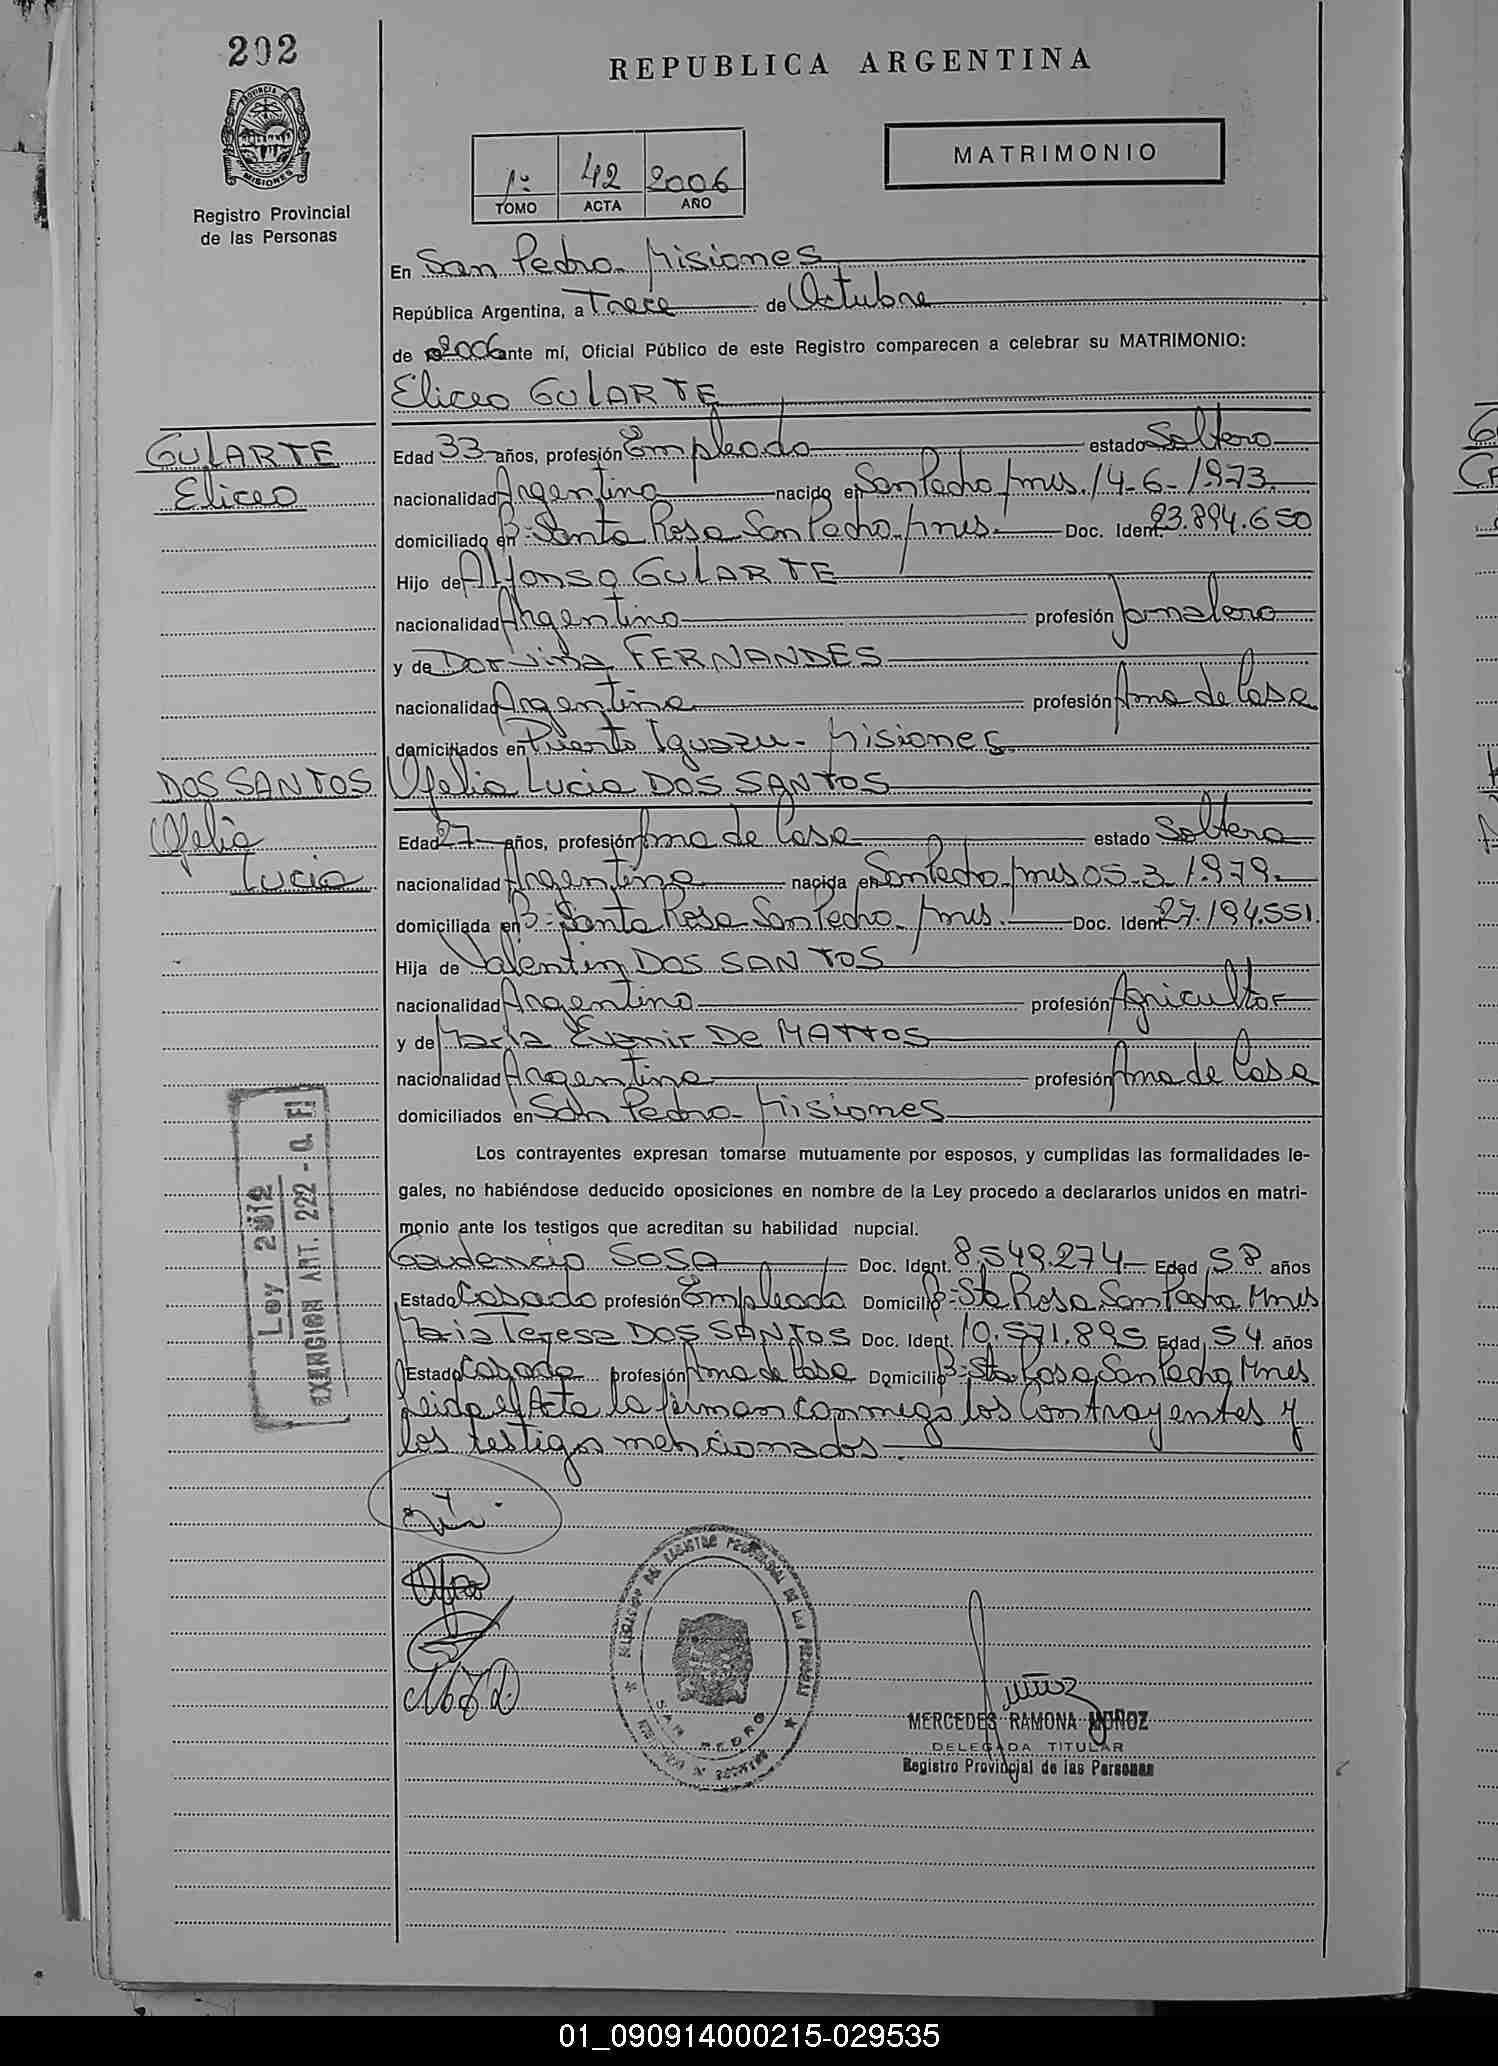 202
REPUBLICA ARGENTINA
MATRIMONIO
1º 42 2006
TOMO ACTA AÑO
PROVINCIA DE
MISIONES
Registro Provincial
de las Personas
En San Pedro - Misiones
República Argentina, a Trece de Octubre
de 2006 ante mí, Oficial Público de este Registro comparecen a celebrar su MATRIMONIO:
Eliceo GULARTE
GULARTE
Eliceo
Edad 33 años, profesión Empleado estado Soltero
nacionalidad Argentino nacido en San Pedro, Mnes. 14-6-1973.
domiciliado en Bº Santa Rosa San Pedro, Mnes. Doc. Ident. 23.894.650
Hijo de Alfonso GULARTE
nacionalidad Argentino profesión Jornalero
y de Dorvina FERNANDES
nacionalidad Argentina profesión Ama de Casa
domiciliados en Puerto Iguazu - Misiones
DOS SANTOS
Ofelia
Lucia
Ofelia Lucia DOS SANTOS
Edad 27 años, profesión Ama de Casa estado Soltera
nacionalidad Argentina nacida en San Pedro, Mnes 05-3-1979.
domiciliada en Bº Santa Rosa San Pedro, Mnes. Doc. Ident. 27.194.551.
Hija de Valentin DOS SANTOS
nacionalidad Argentino profesión Agricultor
y de Maria Evanir De MATTOS
nacionalidad Argentina profesión Ama de Casa
domiciliados en San Pedro - Misiones
Los contrayentes expresan tomarse mutuamente por esposos, y cumplidas las formalidades le-
gales, no habiéndose deducido oposiciones en nombre de la Ley procedo a declararlos unidos en matri-
monio ante los testigos que acreditan su habilidad nupcial.
Gaudencio SOSA Doc. Ident. 8.549.274 Edad 58 años
Estado Casado profesión Empleado Domicilio Bº Sta Rosa San Pedro Mnes
Maria Teresa DOS SANTOS Doc. Ident. 10.571.895 Edad 54 años
Estado Casada profesión Ama de Casa Domicilio Bº Sta Rosa San Pedro Mnes
Leida el Acta la firman conmigo los Contrayentes y
los testigos mencionados
EXENSION ART. 222 - Q. F.
SAN PEDRO
M T D.
MERCEDES RAMONA MUÑOZ
DELEGADA TITULAR
Registro Provincial de las Personas
01_090914000215-029535